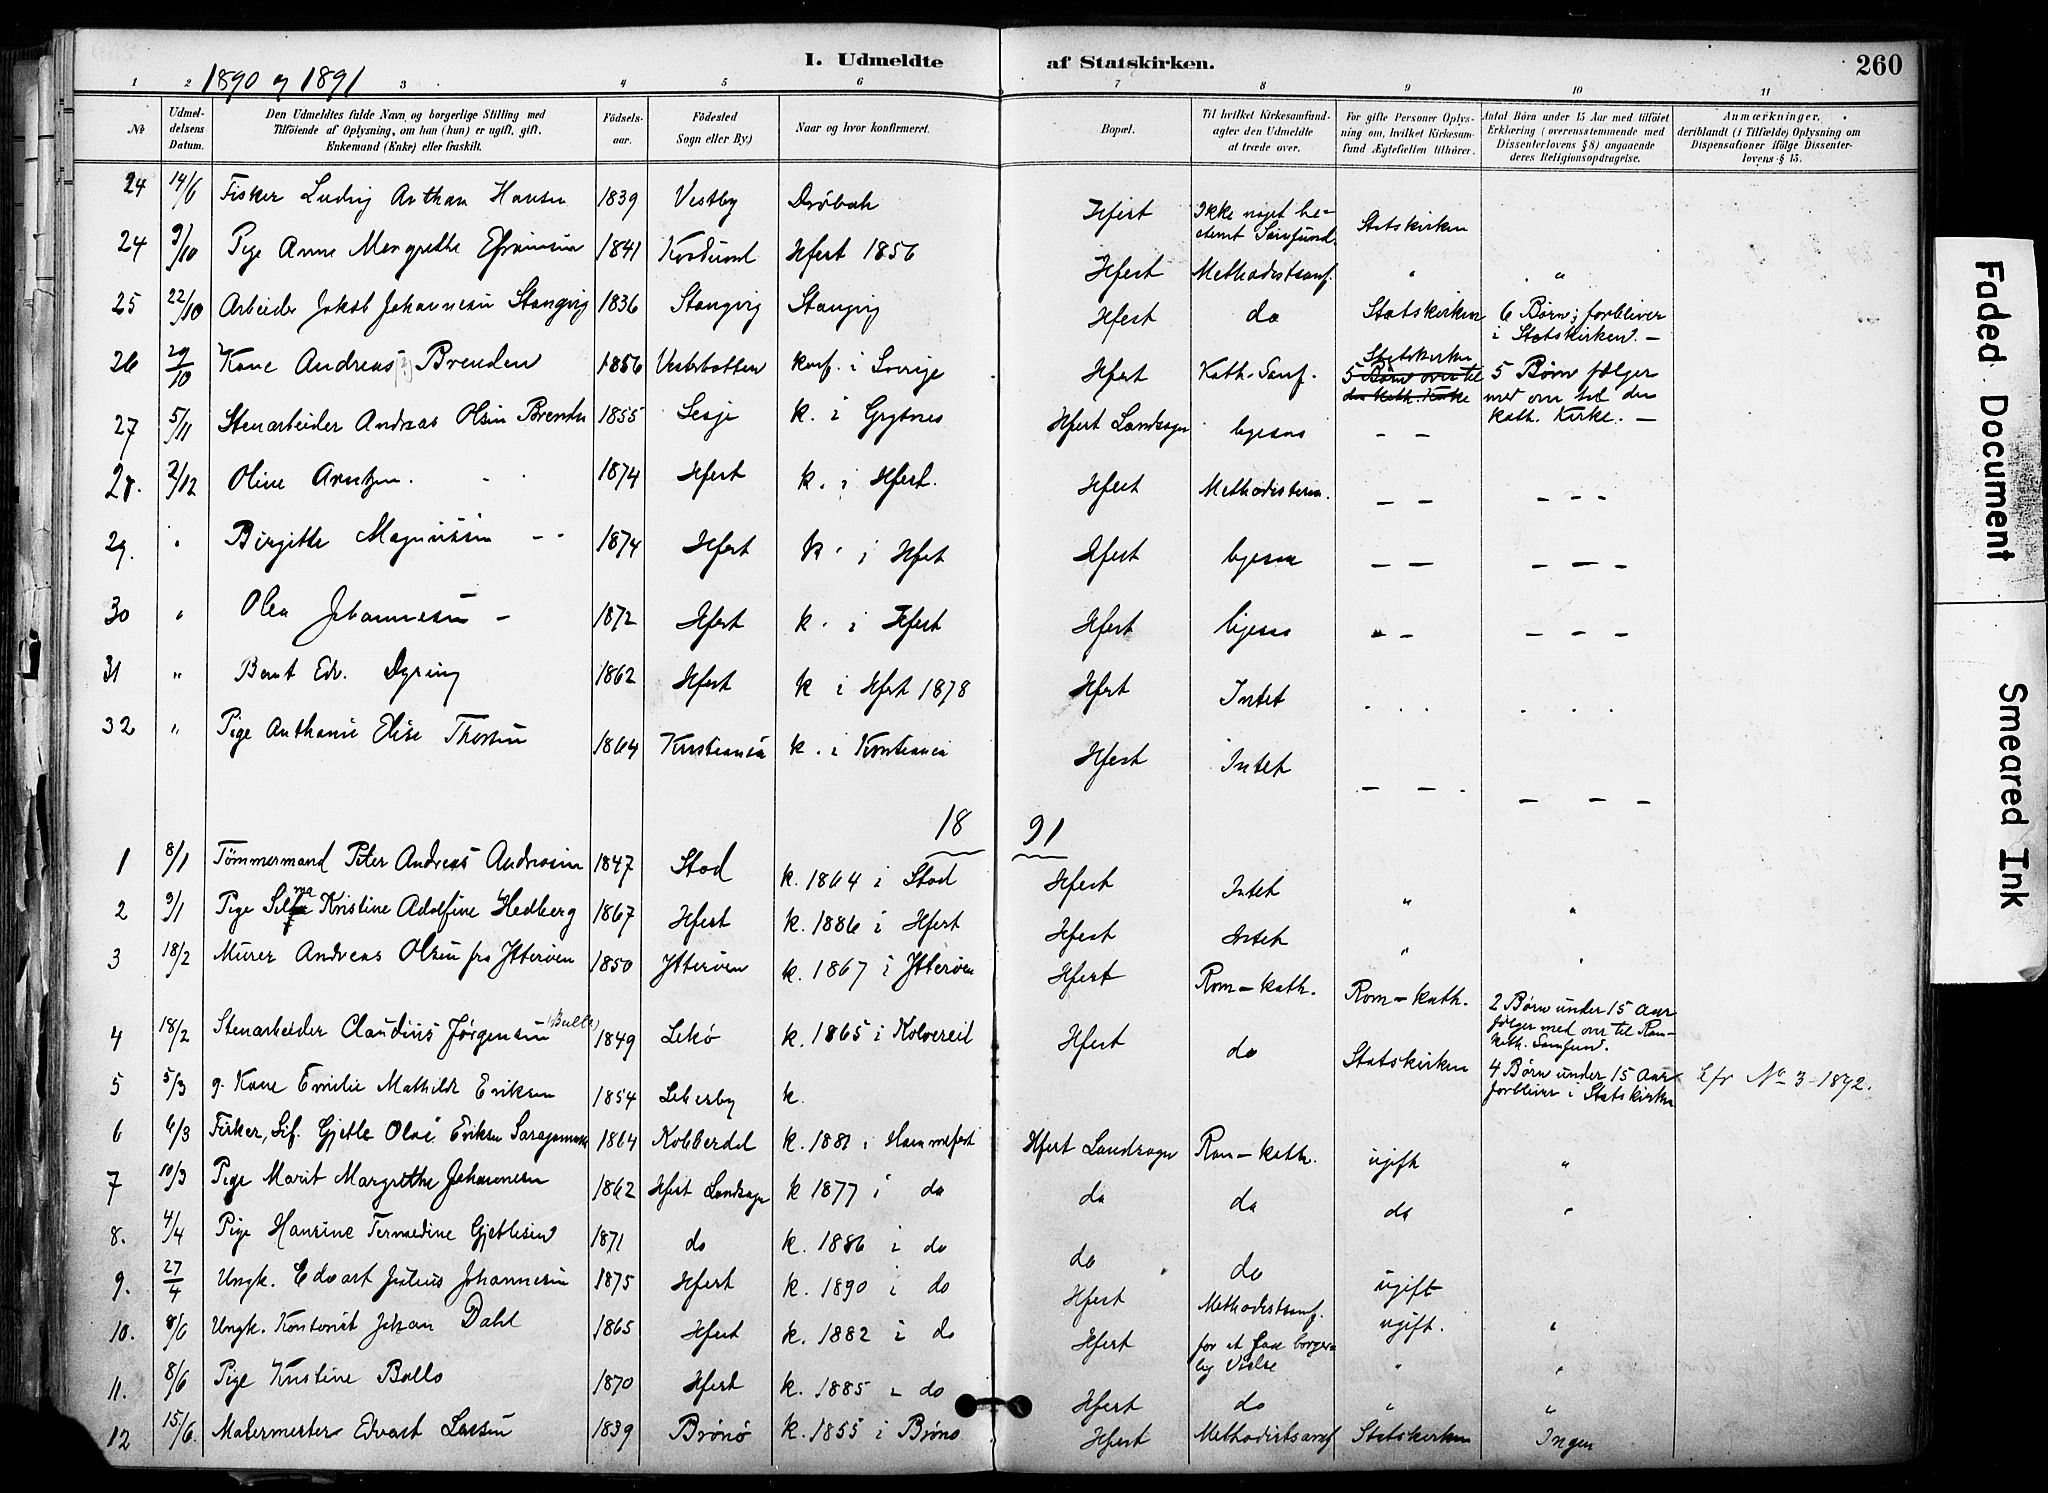 I. Udmeldte af Statskirken. 260
1890 og 1891
1 2 3 4 5 6 7 8 9 10 11
No
Udmeldelsens Datum.
Den Udmeldtes fulde Navn og borgerlige Stilling med
Tilföiende af Oplysning, om han (hun) er ugift, gift,
Enkemand (Enke) eller fraskilt.
Födselsaar.
Födested
Sogn eller By.)
Naar og hvor konfirmeret.
Bopæl.
Til hvilket Kirkesamfund agter den Udmeldte at træde over.
For gifte Personer Oplysning om, hvilket Kirkesamfund Ægtefællen tilhörer.
Antal Börn under 15 Aar med tilföiet
Erklæring (overensstemmende med
Dissenterlovens § 8) angaaende
deres Religionsopdragelse.
Anmærkninger,
deriblandt (i Tilfælde) Oplysning om
Dispensationer ifölge Dissenterlovens § 15.
24 14/6 Fisker Ludvig Anthon Hansen 1839 Vestby Drøbak Hfest Ikke noget bestemt Samfund. Statskirken
24 9/10 Pige Anne Margrethe Efraimsen 1841 Hfest 1856 Hfest Methodistsamf. " "
25 22/10 Arbeider Jakob Johannesen Stangvig 1836 Stangvig Stangvig Hfest do Statskirken 6 Børn; forbliver
i Statskirken. —
26 29/10 Kone Andreas Brenden 1856 Vesterbotten konf. i Sverige Hfest Kath. Samf. Statskirken
5 Børn over til
den kath. Kirke
5 Børn følger
med over til den
kath. Kirke. —
27 5/11 Stenarbeider Andreas Olsen Brenden 1855 Lesje k. i Grytnes Hfest Landsogn ligesaa — —
28. 2/12 Oline Arntzen. 1874 Hfest k. i Hfest. Hfest Methodisterne. — — — — —
29. " Birgitte Magnussen - - 1874 Hfest k. i Hfest Hfest ligesaa — — — — —
30 " Olea Johannesen - 1872 Hfest k. i Hfest Hfest ligesaa — — — — —
31 " Bernt Edv. Dyring 1862 Hfest k i Hfest 1878 Hfest Intet . . . . . .
32 " Pige Anthonie Elise Thorsen 1864 Kristiania k. i Kristiania Hfest Intet — — . — — —
18 91
1 8/1 Tömmermand Peter Andreas Andreasen 1847 Stod k. 1864 i Stod Hfest Intet " "
2 9/1 Pige Selma Kristine Adolfine Hedberg 1867 Hfest k. 1886 i Hfest Hfest Intet " "
3 18/2 Murer Andreas Olsen fra Ytterøen 1850 Ytterøen k. 1867 i Ytterøen Hfest Rom-kath. Rom-kath. 2 Børn under 15 Aar
følger med over til Rom-
kath. Samfund.
4 18/2 Stenarbeider Claudius Jørgensen (Bull) 1849 Lekø k. 1865 i Kolvereid Hfest do Statskirken 4 Børn under 15 Aar
forbliver i Statskirken
5 5/3 g. Kone Emilie Mathilde Eriksen 1854 Lebesby k. Cfr No 3-1892.
6 6/3 Fisker, Sif. Gjetle Olai Eriksen 1864 Kobberdal k. 1881 i Hammefest Hfest Landsogn Rom-kath. ugift "
7 10/3 Pige Marit Margrethe Johannesen 1862 Hfest Landsogn k 1877 i do da da do "
8. 4/4 Pige Hansine Gjetlesen 1871 do k. 1886 i do do do
9. 27/4 Ungk. Edvart Julius Johannesen 1875 Hfest k. 1890 i do Hfest Methodistsamf. ugift
10. 8/6 Ungk. Kontorist Johan Dahl 1865 Hfest k. 1882 i do Hfest for at faa borgerlig Vielse ugift. "
11. 8/6 Pige Kristine Ballo 1870 Hfest k. 1885 i do Hfest do " "
12 15/6. Malermester Edvart Larsen 1839 Brønø k. 1855 i Brønø Hfest Methodistsamf Statskirken Ingen
Faded Document
Smeared Ink